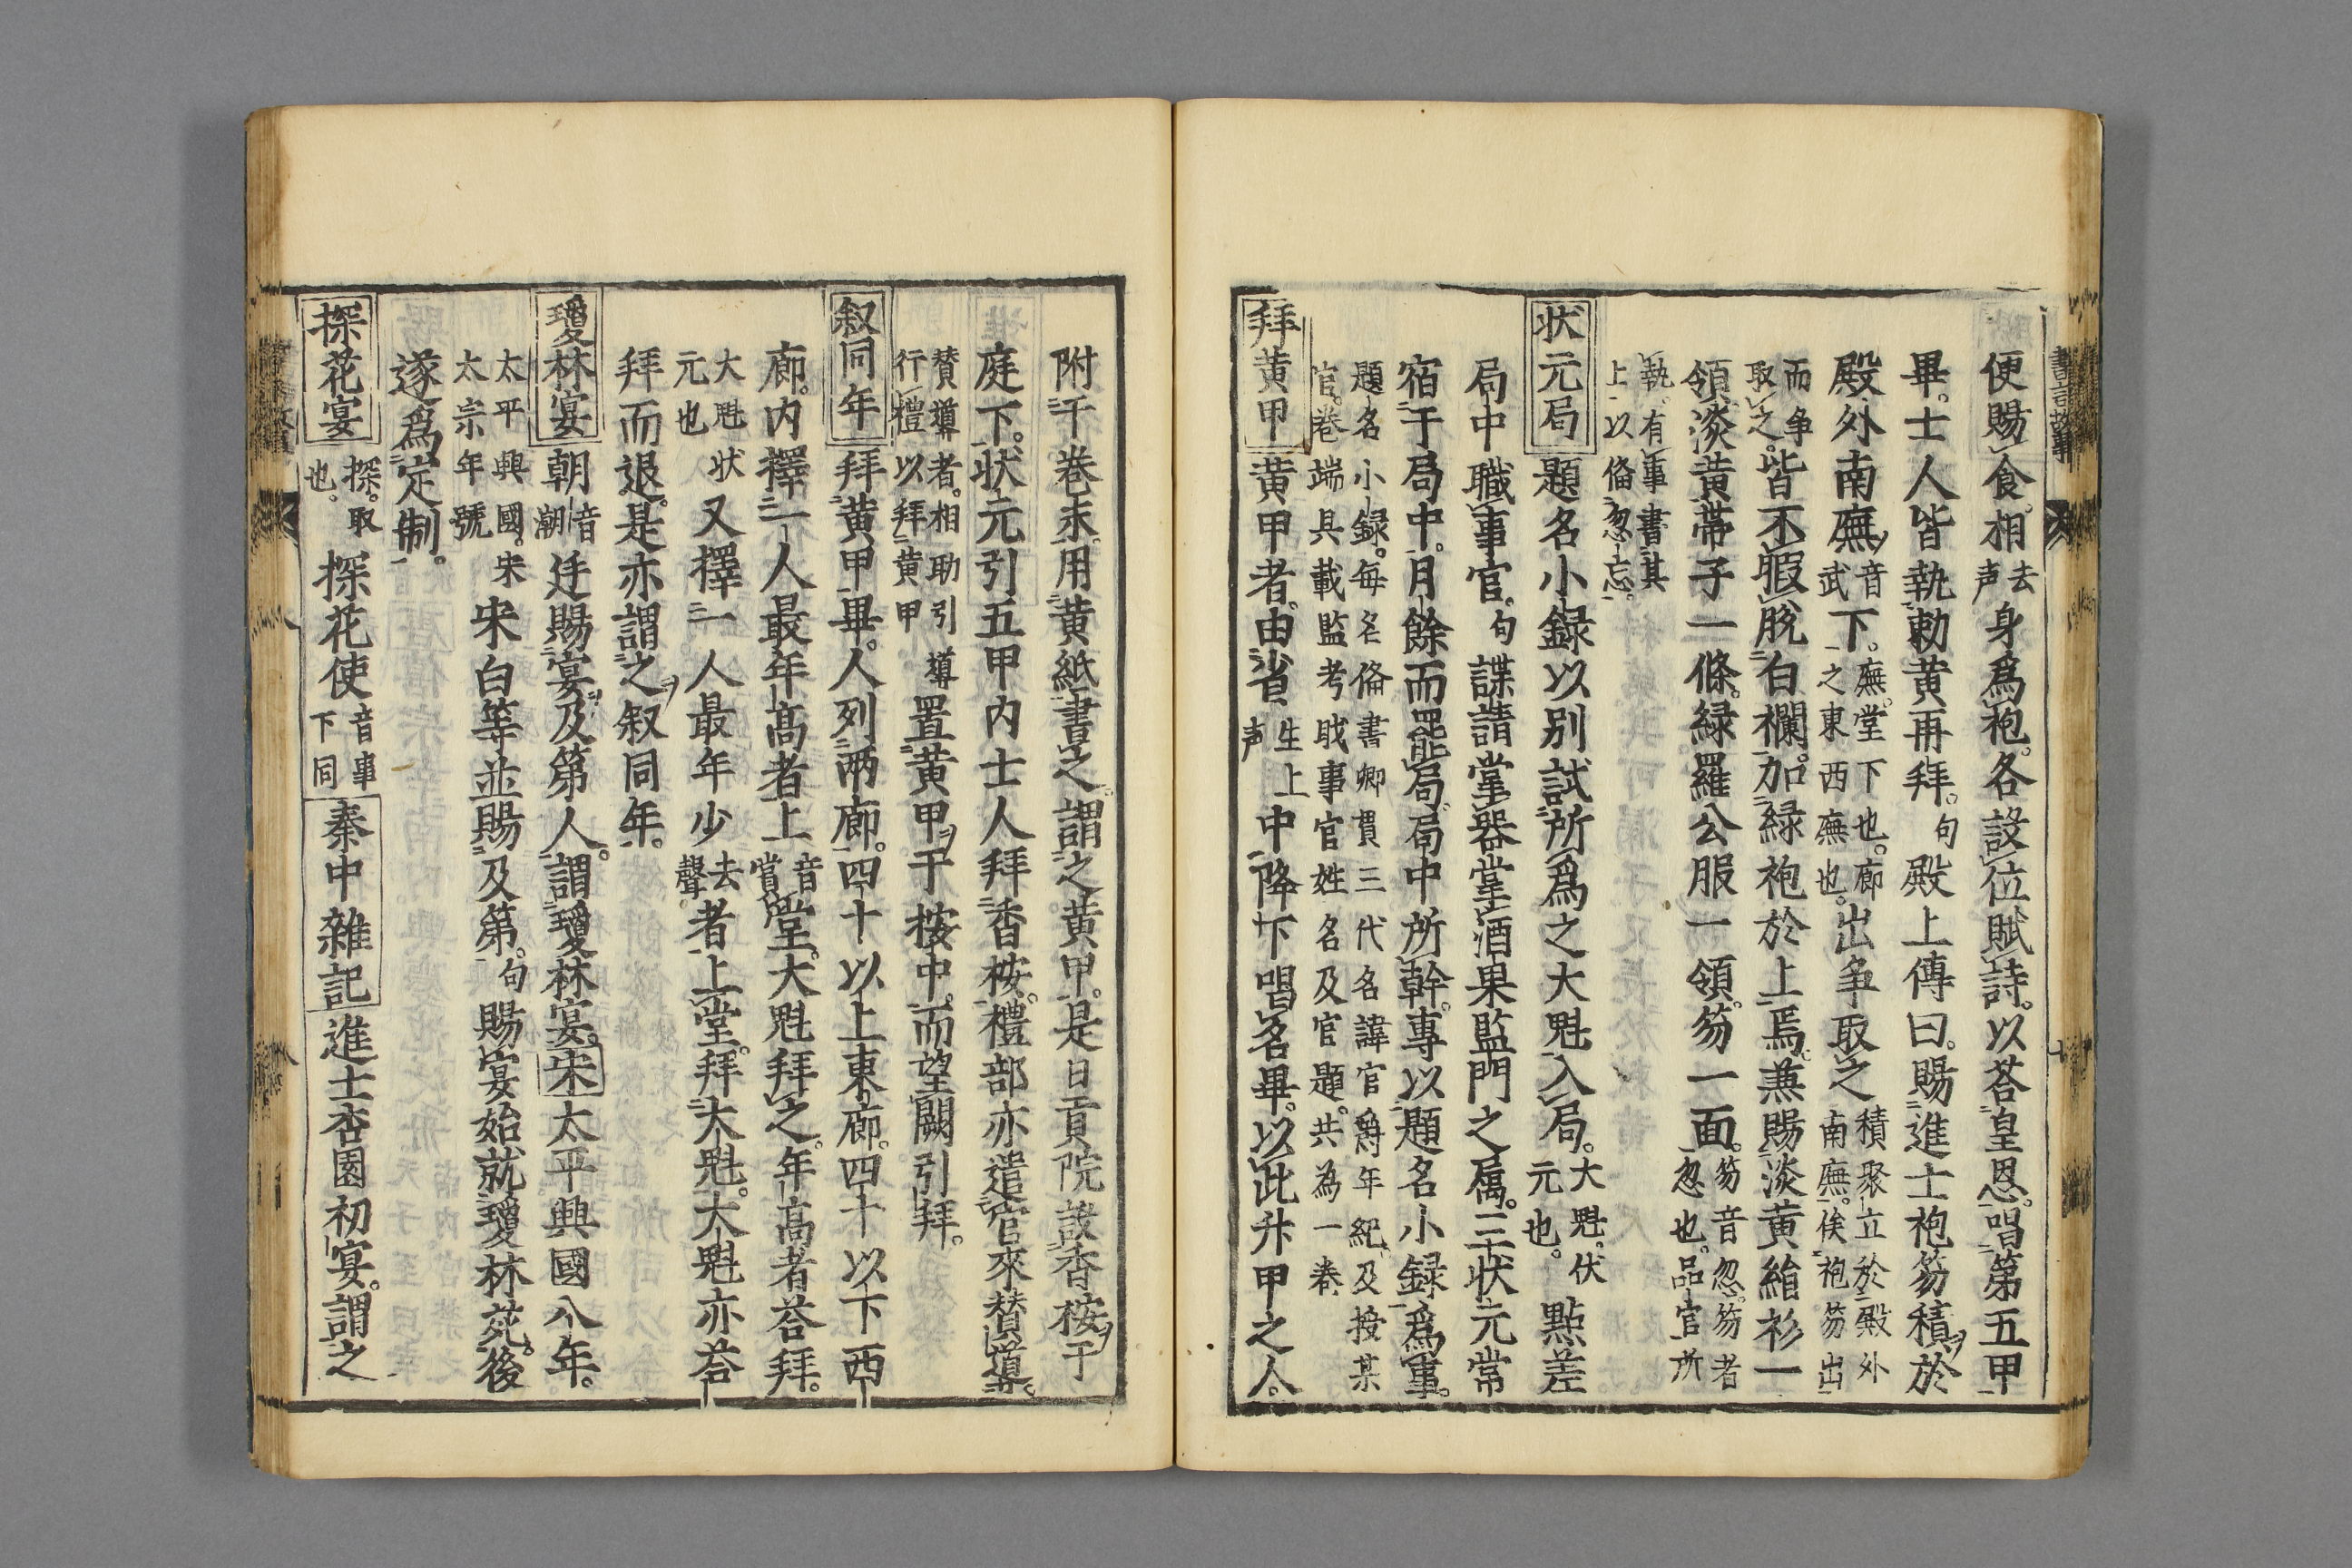 便賜食。相去声身爲袍。各設位賦詩。以荅皇恩。唱第五甲
畢。士人皆執勅黄再拜。句殿上傳曰。賜進士袍笏積於
殿外南廡音武下。廡。堂下也。廊之東西廡也。出争取之積聚立於殿外南廡。俟袍笏出
而争取之。皆不暇脫白襴。加緑袍於上焉。兼賜淡黄絹衫一
領。淡黄帯子一條。緑羅公服一領。笏一面。笏音忽。笏者忽也。品官所
執。有事書其上以俻忽忘。
状元局題名小録以别試所爲之大魁入局。大魁。伏元也。點差
局中職事官。句諜請掌器掌酒果監門之属。三状元常
宿于局中。月餘而罷局。局中所幹。專以題名小録爲事。
題名小録。每名俻書郷貫三代名諱官爵年紀及授某官。卷端具載監考戝事官姓名及官題。共為一卷
拜黄甲黄甲者。由省生上声中降下唱名畢。以此升甲之人。
附于卷末。用黄紙書之。謂之黄甲。是日貢院設香桉于
庭下。状元引五甲内士人拜香桉。禮部亦遣官來賛導。
賛導者。相助引導行禮以拜黄甲置黄甲于桉中。而望闕引拜。
叙同年拜黄甲畢。人列兩廊。四十以上東廊。四十以下西
廊。内擇一人最年高者上音嘗堂。大魁拜之。年高者荅拜。
大魁状元也又擇一人最年少去聲者上堂。拜大魁。大魁亦荅
拜而退。是亦謂之叙同年。
瓊林宴朝音潮廷賜宴及第人。謂瓊林宴。宋太平興國八年。
太平興國。宋太宗年號宋白等並賜及第。句賜宴始就瓊林苑。後
遂爲定制。
探花宴探。取也。探花使音事下同秦中雜記進士杏園初宴。謂之